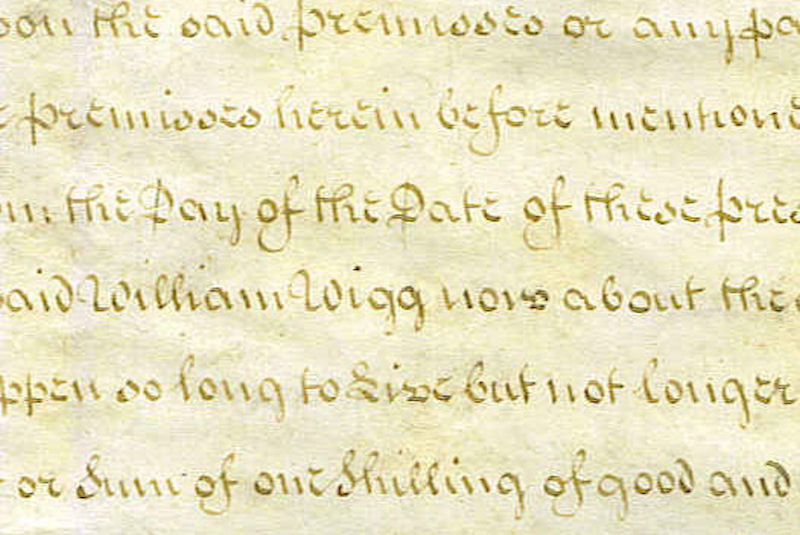 oon the said premisses or any pa
e premisses herein before mentione
om the Day of the Date of these pres
said William Wigg now about the
ppen so long to Live but not longer
or Sum of one Shilling of good and